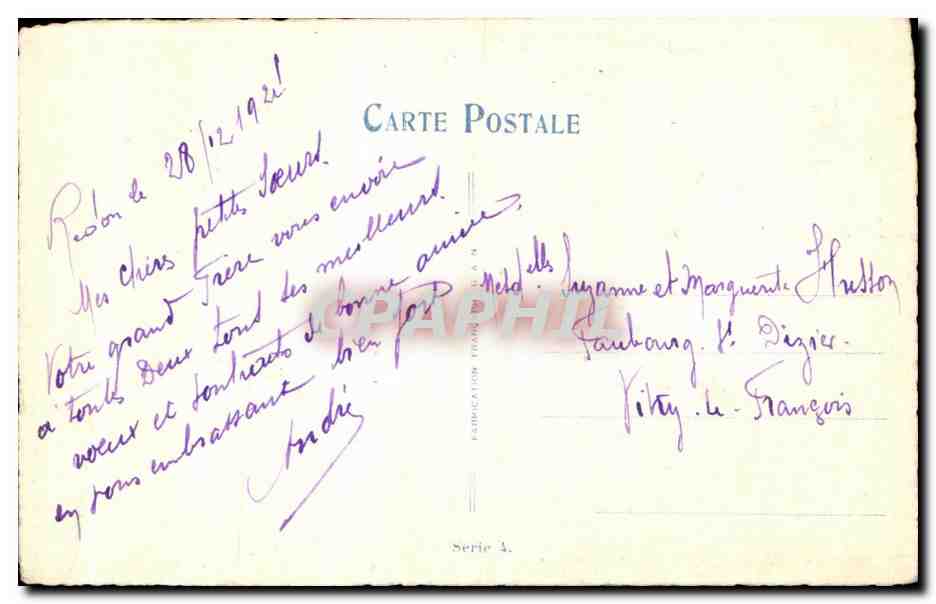 CARTE POSTALE
le 28/12 192
Mes chères petites Sœurs.
Votre grand Frère vous envoie
à toutes Deux tous ses meilleurs
vœux et souhaits de bonne année
en vous embrassant bien fort
André
FABRICATION FRANÇAISE
CPAPHIL
Suzanne et Marguerite Husson
Faubourg St Dizier.
Vitry-le-François
Série 4.